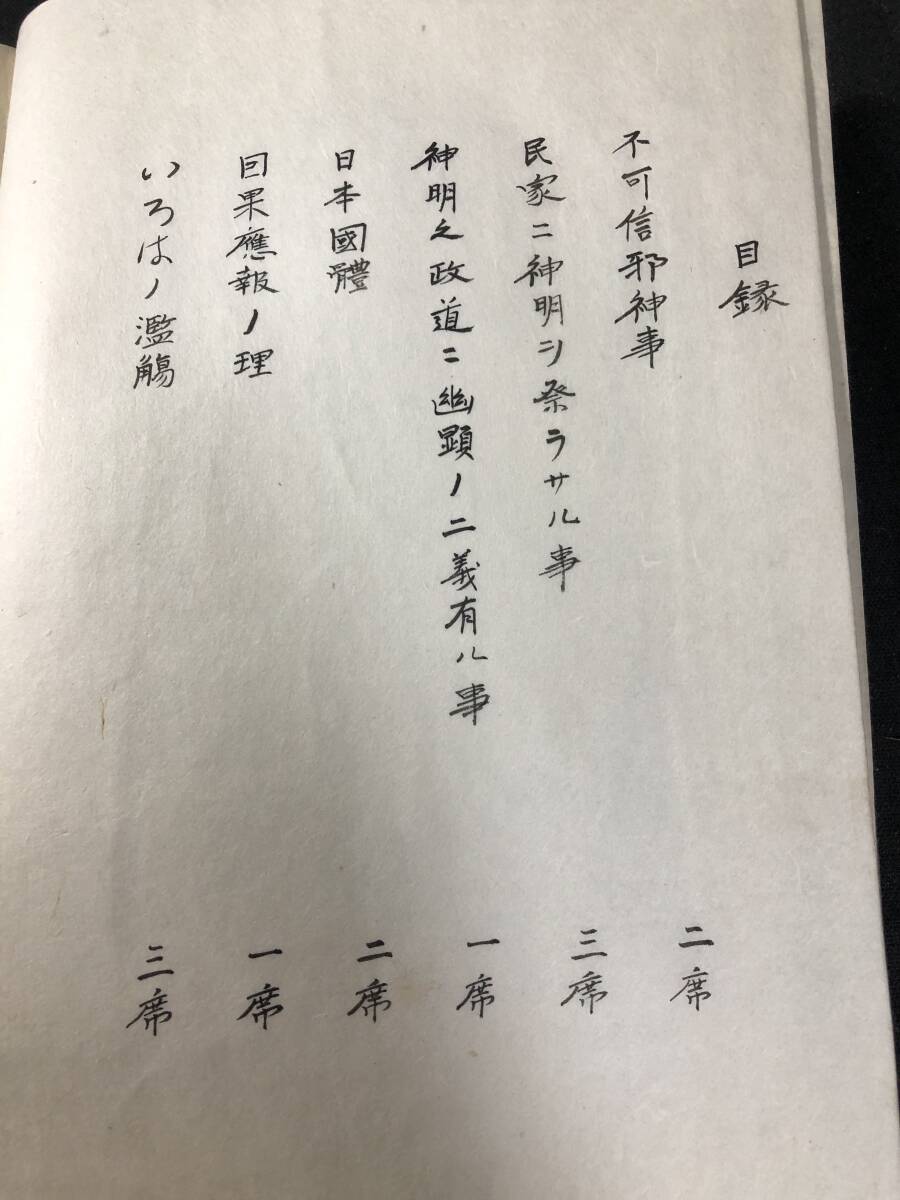 目録
不可信邪神事 二席
民家ニ神明ヲ祭ラサル事 三席
神明之政道ニ幽顕ノ二義有ル事 一席
日本國體 二席
因果應報ノ理 一席
いろはノ濫觴 三席